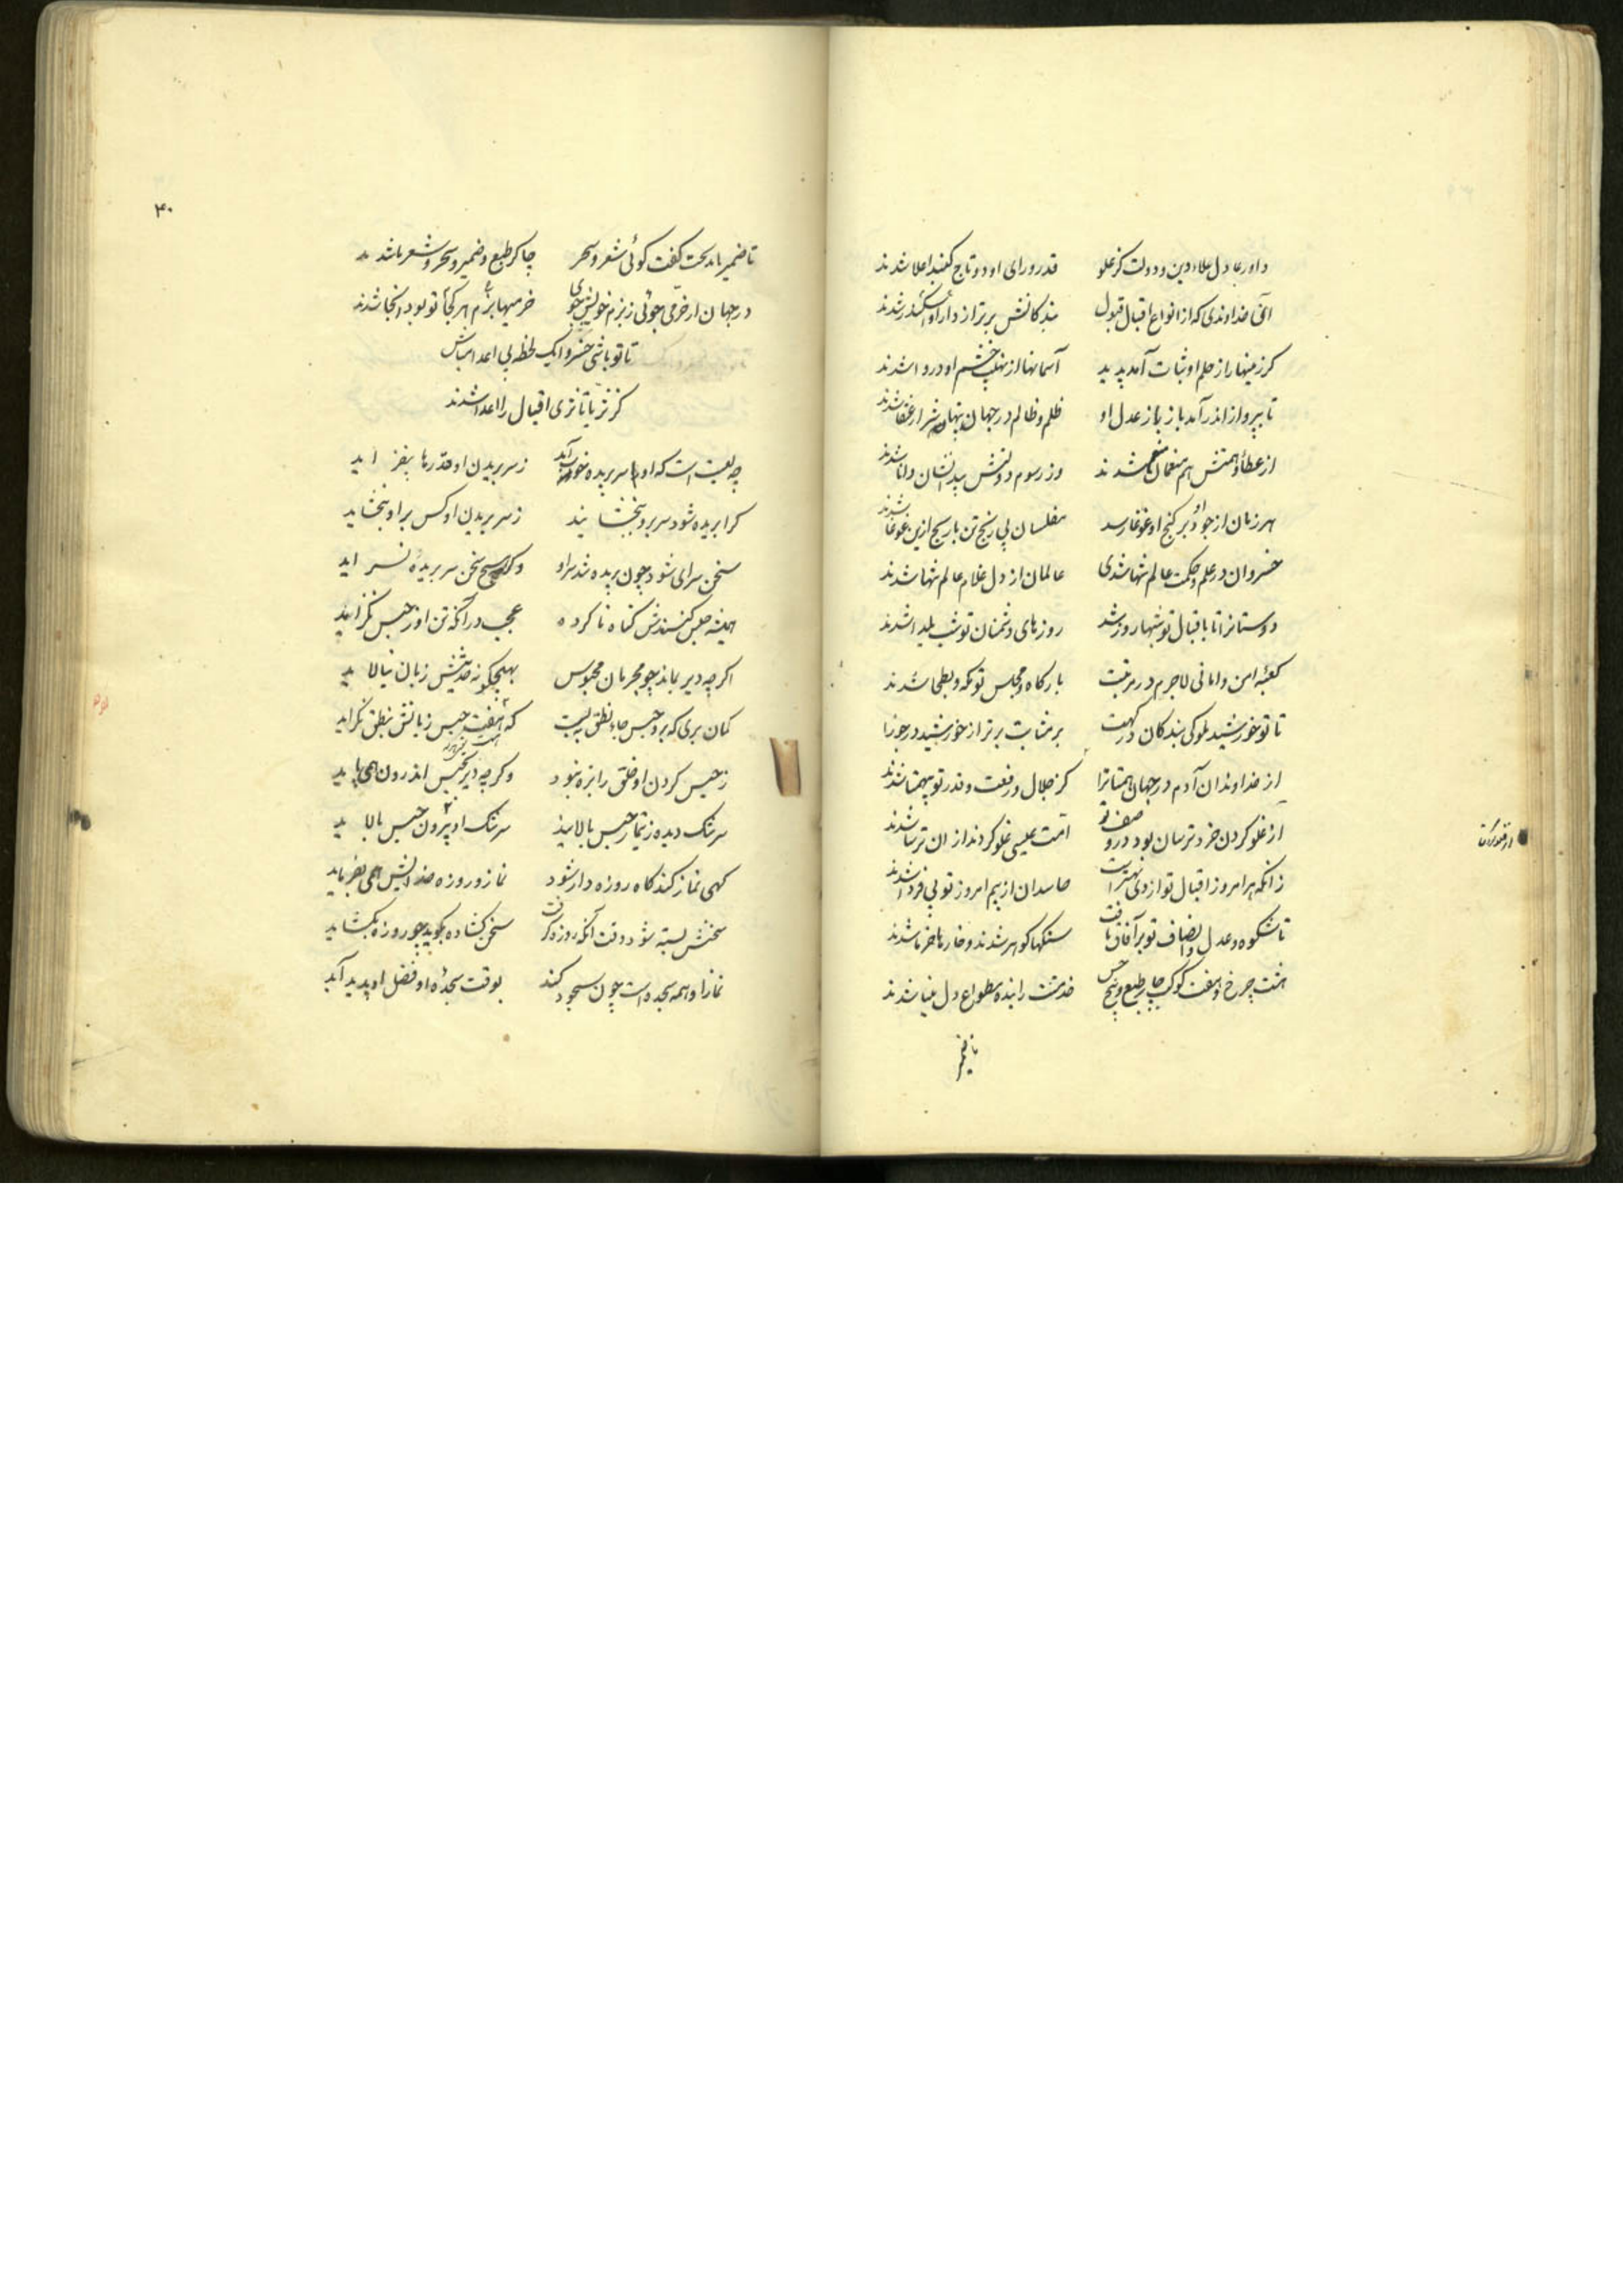 داور عادل علاء دین و دولت کز علو قدر و رای او دو تاج کنبد اعلا شدند
آن خداوندی که از انواع اقبال قبول بندکانش برتر از دارا و اسکندر شدند
کز زمینها را ز حلم او ثبات آمد پدید آسمانها از نهیب خشم او دروا شدند
تا بپرواز اندر آمد باز باز عدل او ظلم و ظالم در جهان پنهان شدند
از عطا و همتش هم منعمان شدند وز رسوم دانشش بیدانشان دانا شدند
هر زمان از جود او بر کنج او غوغا رسد مفلسان بی رنج تن با کنج ازین غوغا شدند
خسروان در علم و حکمت عالم تنها شدی عالمان از دل غلام عالم تنها شدند
دوستانرا تا باقبال تو شبها روز شد روزهای دشمنان تو شب یلدا شدند
کعبه امن و امانی لاجرم در مرتبت بارکاه و مجلس تو مکه و بطحا شدند
تا تو خورشید ملوکی بندکان درکهت برتر از خورشید در جوزا
از خداوندان آدم در جهان همتا ترا کز جلال و رفعت و قدر تو بیهمتا شدند
از غلو کردن خرد ترسان بود در وصف تو امت عیسی غلو کردند از ان ترسا شدند
زانکه هر امروز اقبال تو از دی بهترست حاسدان از بیم امروز تو بی فردا شدند
تا شکوه و عدل و انصاف تو بر آفاق تافت سنکها کوهر شدند و خارها خرما شدند
هفت چرخ و هفت کوکب چار طبع و پنج حس خدمتت را بنده بطوع دل بینا شدند
تا ضمیر
۴۰
تا ضمیر ما مدیحت کفت کوئی شعر و سحر چاکر طبع و ضمیر و سحر و شعر ما شدند
در جهان ار خرمی جوئی ز بزم خویش جوی خرمیها بزم هر کجا تو بود آنجا شدند
تا تو باشی خسروا یک لحظه بی اعدا مباش
کز ثریا تا ثری اقبال را اعدا شدند
چه لعبت است که او سر بریده خوب آید ز سر بریدن او قدرها بیفزاید
کرا بریده شود سر برو ببخشایند ز سر بریدن او کس بر او نبخشاید
سخن سرای شود چون بریده شد سر او و کر چه هیچ سخن سر بریده نسراید
همیشه حبس کنندش کناه نا کرده عجب در آنکه تن او ز حبس نکزاید
اکر چه دیر بماند چو مجرمان محبوس بهیچکونه حدیثش زبان نیالاید
کمان بری که برو حبس جاء نطق ببست که حبس زبانش بنطق نکراید
ز حبس کردن او خلق را بزه نبود و کر چه دیر بحبس اندرون همی باید
سرشک دیده ز تیمار حبس بالایند سرشک او بیرون حبس بالاید
کهی نماز کند کاه روزه دار شود نماز و روزه خدایش همی بفرماید
سخنش بسته شود وقت آنکه روزه کرفت سخن کشاده بکوید چو روزه بکشاید
نماز او همه سجده است چون سجود کند بوقت سجدهٔ او فضل او پدید آید